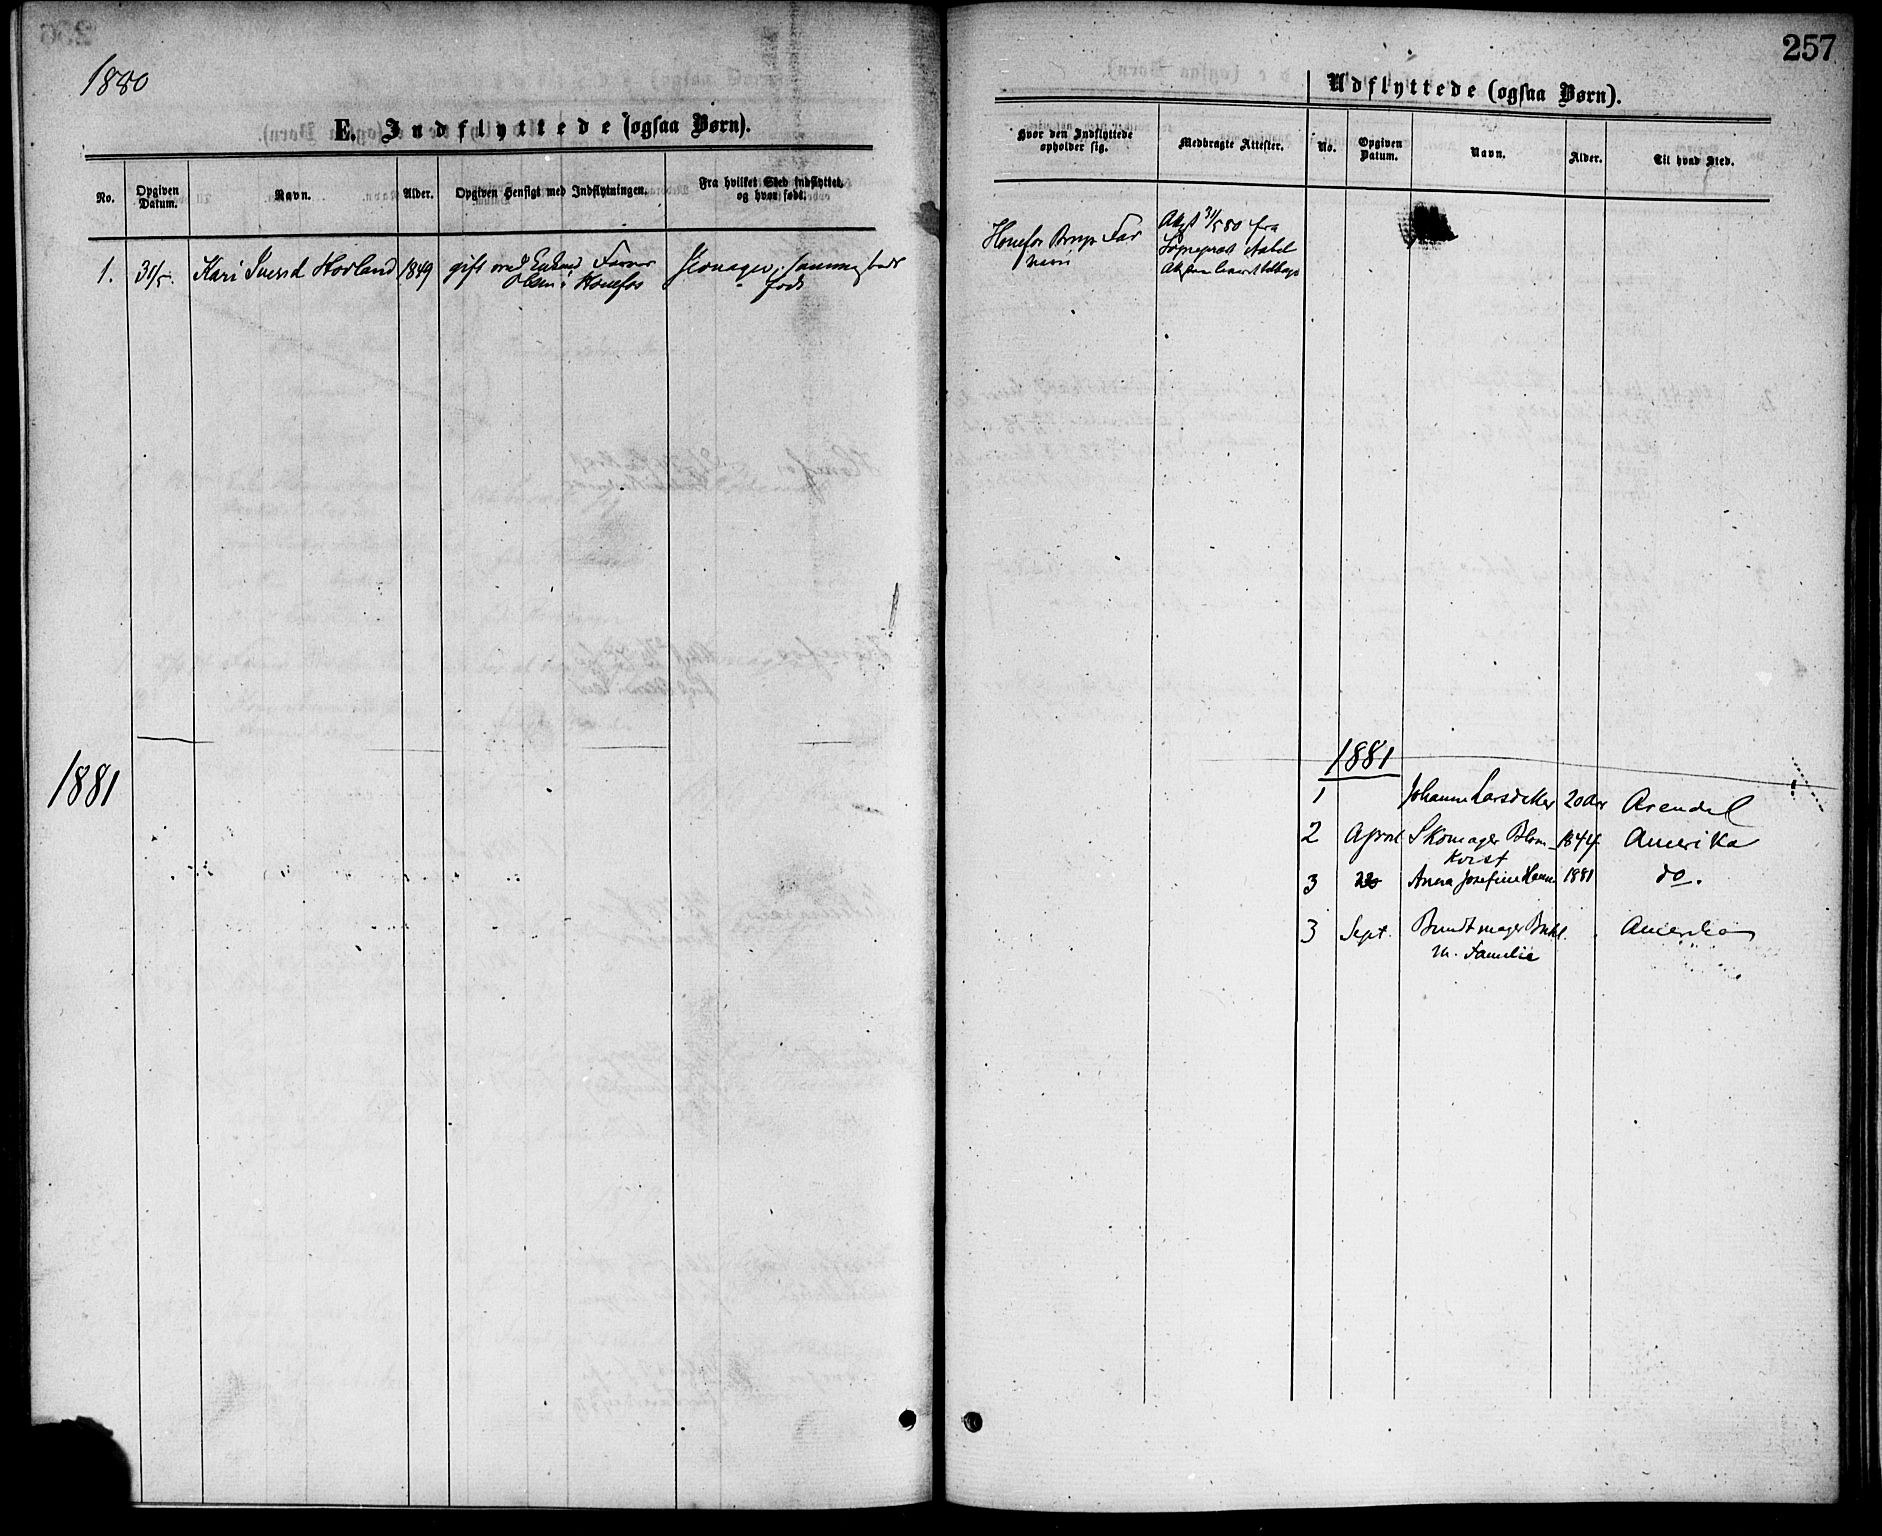 1880
E. Indflyttede (ogsaa Børn).
No.
Opgiven Datum.
Navn.
Alder.
Opgiven Hensigt med Indflytningen.
Fra hvilket Sted indflyttet, og hvor født.
1.
31/5.
Kari Svensd Hovland
1849
gift med
Olsen i Hønefos
født
1881
257
Udflyttede (ogsaa Børn).
Hvor den Indflyttede opholder sig.
Medbragte Attester.
No.
Opgiven Datum.
Navn.
Alder.
Til hvad Sted.
Hønefos Brugs Far
veri
Attest 31/5 80 fra
Sogneprest Aabel
1881
1
Johanne Larsdatter
20 Aar
Arendal
2
April
Skomager Blom-
kvist
1844
Amerika
3
Anna Josefine Hanna
1881
do.
3
Sept.
Bundtmager
m. Familie
Amerika